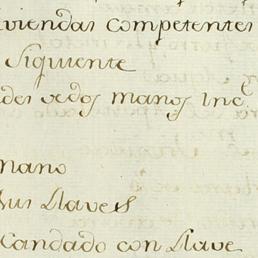 viendas competentes
Siguiente
des vedos manos Inc.
mano
sus Llaves
Candado con Llave